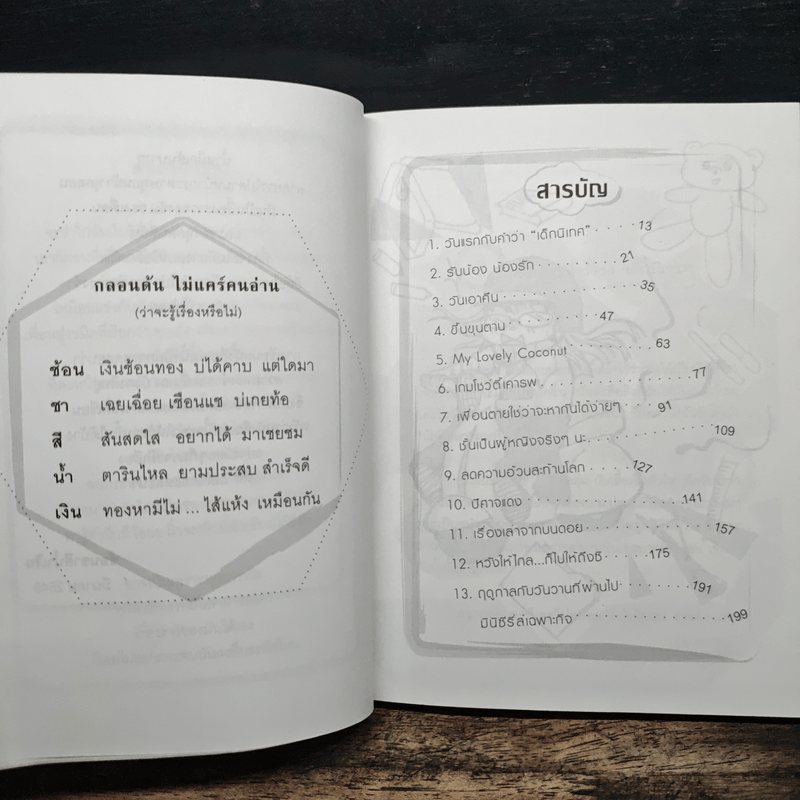 กลอนด้น ไม่แคร์คนอ่าน
(ว่าจะรู้เรื่องหรือไม่)
ช้อน เงินช้อนทอง บ่ได้คาบ แต่ใดมา
ชา เฉยเฉื่อย เชือนแช บ่เกยท้อ
สี สันสดใส อยากได้ มาเชยชม
น้ำ ตารินไหล ยามประสบ สำเร็จดี
เงิน ทองหามีไม่ ... ไส้แห้ง เหมือนกัน
สารบัญ
1. วันแรกกับคำว่า "เด็กนิเทศ" 13
2. รับน้อง น้องรัก 21
3. วันเอาคืน 35
4. ขึ้นขุนตาน 47
5. My Lovely Coconut 63
6. เกมโชว์ตี๋เคารพ 77
7. เพื่อนตายใช่ว่าจะหากันได้ง่ายๆ 91
8. ชั้นเป็นผู้หญิงจริงๆ นะ 109
9. ลดความอ้วนสะท้านโลก 127
10. ปีศาจแดง 141
11. เรื่องเล่าจากบนดอย 157
12. หวังให้ไกล...ก็ไปให้ถึงซิ 175
13. ฤดูกาลกับวันวานที่ผ่านไป 191
มินิซีรี่ส์เฉพาะกิจ 199